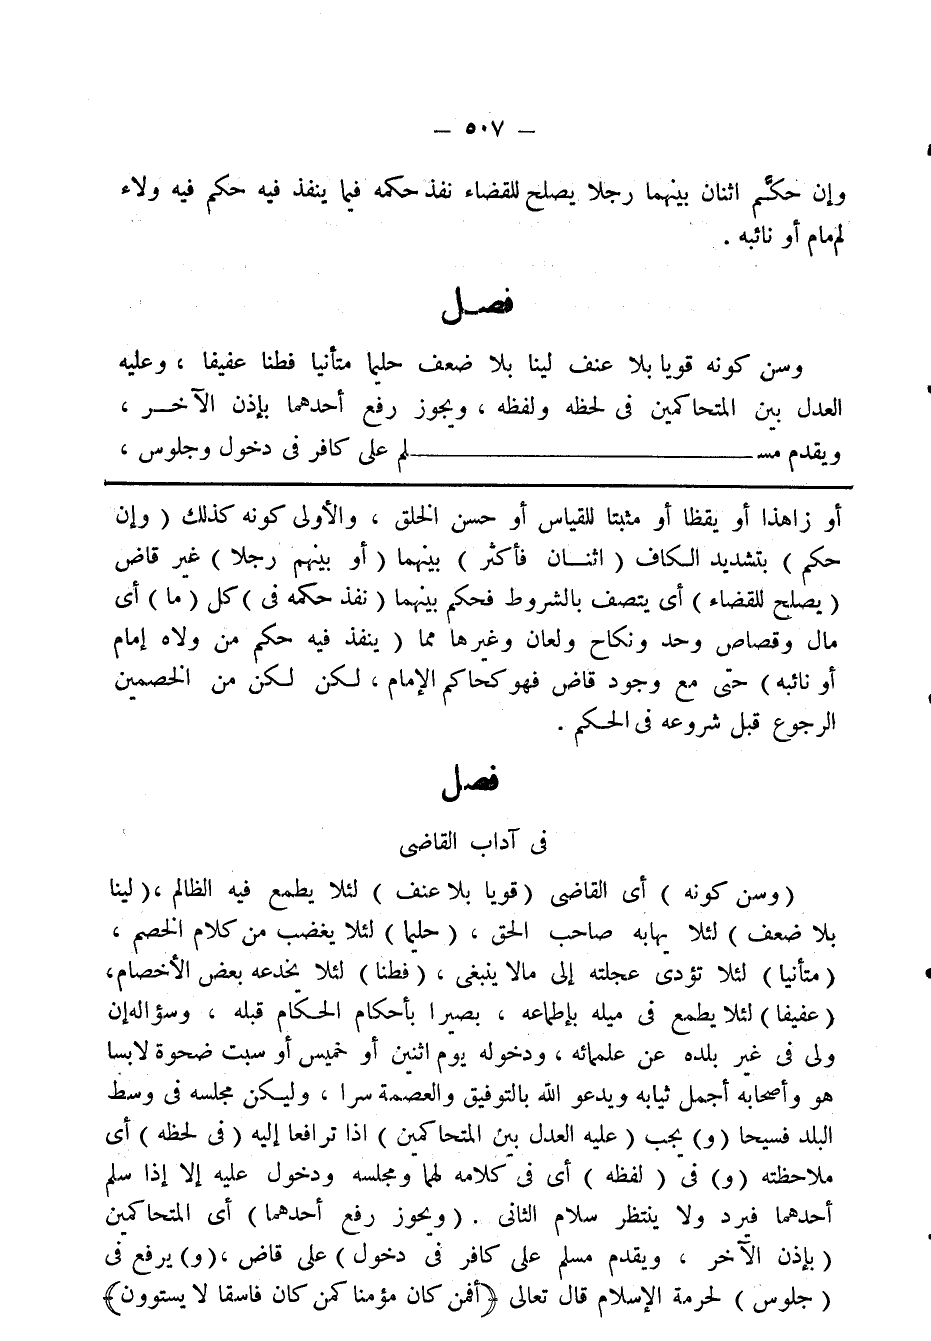 — ٥٠٧ —
وإن حكَّم اثنان بينهما رجلا يصلح للقضاء نفذ حكمه فيما ينفذ فيه حكم فيه ولاء
لمام أو نائبه .
فصل
وسن كونه قويا بلا عنف لينا بلا ضعف حليما متأنيا فطنا عفيفا ، وعليه
العدل بين المتحاكمين فى لحظه ولفظه ، ويجوز رفع أحدهما بإذن الآخر ،
ويقدم مسلم على كافر فى دخول وجلوس ،
أو زاهذا أو يقظا أو مثبتا للقياس أو حسن الخلق ، والأولى كونه كذلك ( وإن
حكم ) بتشديد الكاف ( اثنان فأكثر ) بينهما ( أو بينهم رجلا ) غير قاض
( يصلح للقضاء ) أى يتصف بالشروط فحكم بينهما ( نفذ حكمه فى ) كل ( ما ) أى
مال وقصاص وحد ونكاح ولعان وغيرها مما ( ينفذ فيه حكم من ولاه إمام
أو نائبه ) حتى مع وجود قاض فهو كحاكم الإمام ، لكن لكن من الخصمين
الرجوع قبل شروعه فى الحكم .
فصل
فى آداب القاضى
( وسن كونه ) أى القاضى ( قويا بلا عنف ) لئلا يطمع فيه الظالم ، ( لينا
بلا ضعف ) لئلا يهابه صاحب الحق ، ( حليما ) لئلا يغضب من كلام الخصم ،
( متأنيا ) لئلا تؤدى عجلته إلى مالا ينبغى ، ( فطنا ) لئلا يخدعه بعض الأخصام ،
( عفيفا ) لئلا يطمع فى ميله بإطماعه ، بصيرا بأحكام الحكام قبله ، وسؤاله إن
ولى فى غير بلده عن علمائه ، ودخوله يوم اثنين أو خميس أو سبت ضحوة لابسا
هو وأصحابه أجمل ثيابه ويدعو الله بالتوفيق والعصمة سرا ، وليكن مجلسه فى وسط
البلد فسيحا ( و ) يجب ( عليه العدل بين المتحاكمين ) اذا ترافعا إليه ( فى لحظه ) أى
ملاحظته ( و ) فى ( لفظه ) أى فى كلامه لهما ومجلسه ودخول عليه إلا إذا سلم
أحدهما فيرد ولا ينتظر سلام الثانى . ( ويجوز رفع أحدهما ) أى المتحاكمين
( بإذن الآخر ، ويقدم مسلم على كافر فى دخول ) على قاض ، ( و ) يرفع فى
( جلوس ) لحرمة الإسلام قال تعالى ﴿ أفمن كان مؤمنا كمن كان فاسقا لا يستوون ﴾